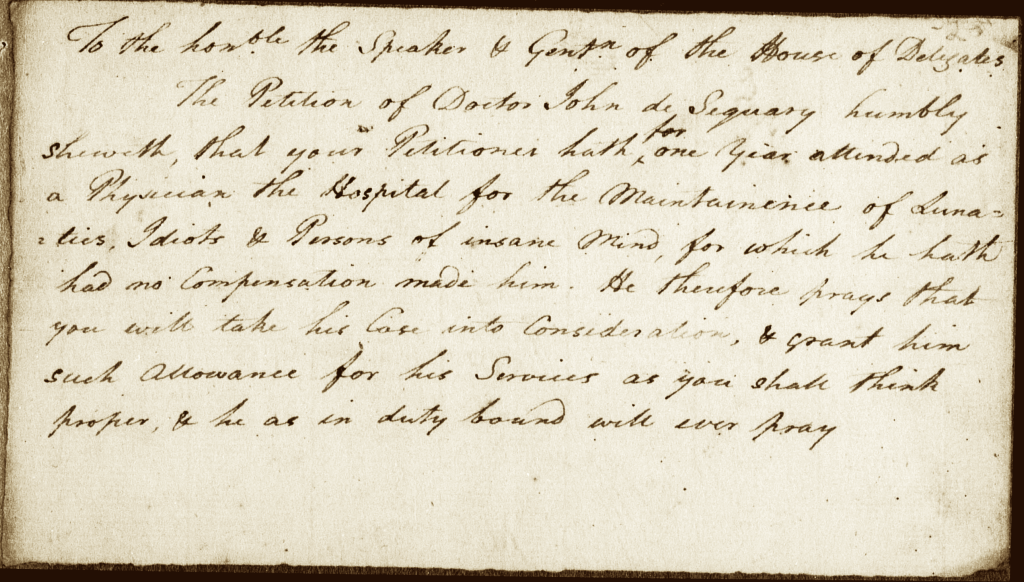 To the hon^ble the Speaker & Gent^n of the House of Delegates
The Petition of Doctor John de Sequary humbly
sheweth, that your Petitioner hath ^for one Year attended as
a Physician the Hospital for the Maintainence of Luna=
=tics, Idiots & Persons of insane Mind, for which he hath
had no Compensation made him. He therefore prays that
you will take his Case into Consideration, & grant him
such Allowance for his Services as you shall think
proper, & he as in duty bound will ever pray